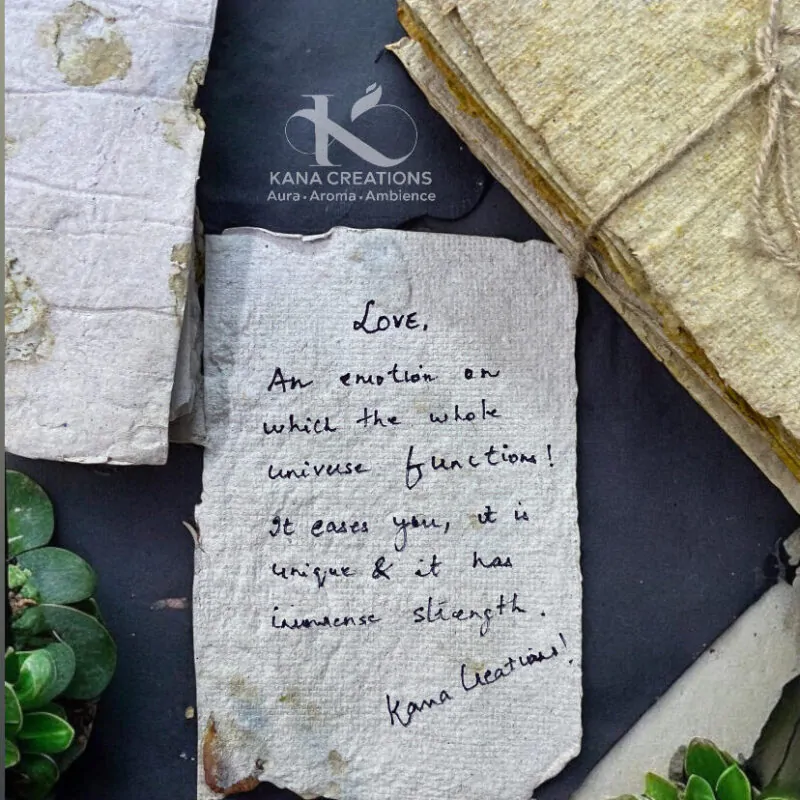 KANA CREATIONS
Aura • Aroma • Ambience
Love,
An emotion on
which the whole
universe functions!
It eases you, it is
unique & it has
immense strength.
Kana Creations!